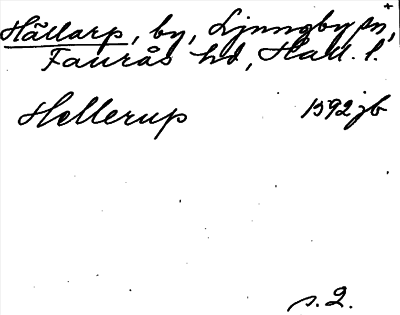 Hällarp, by, Ljungby sn,
Faurås hd, Hall. l.
Hellerup 1592 jb
s. 2.